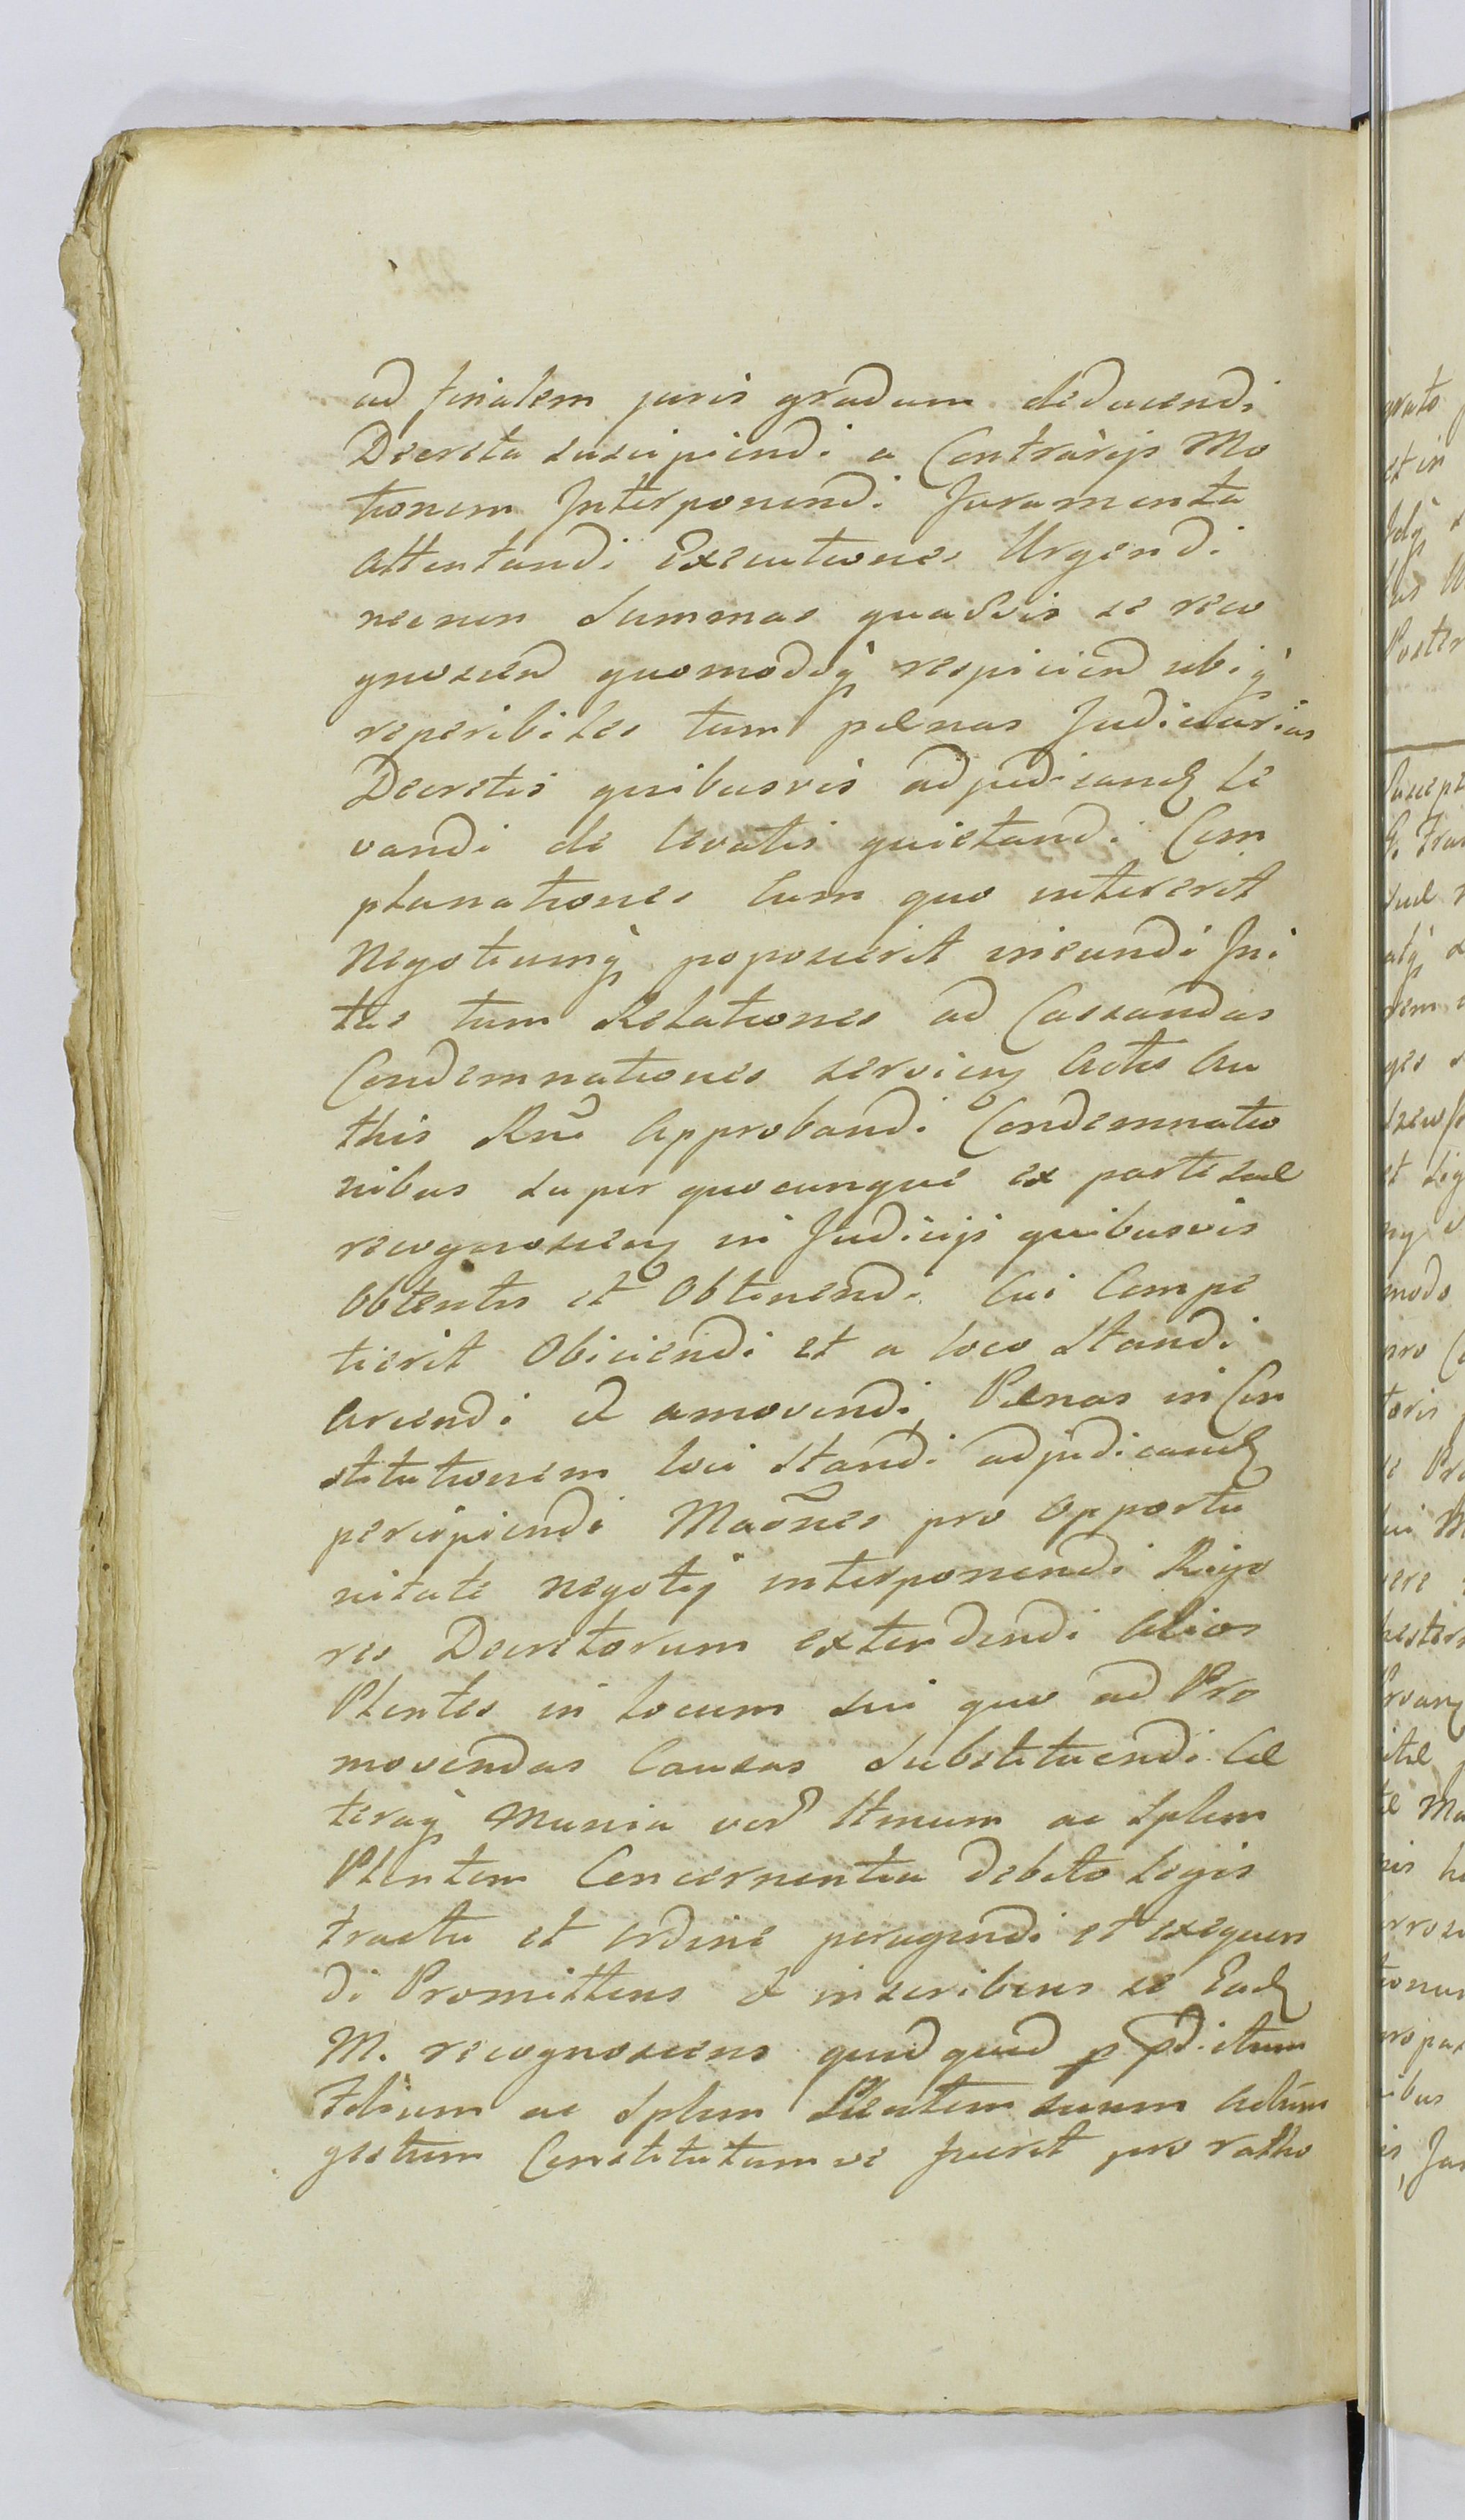 ad finalem juris gradum deducendi
Decreta suscipiendi a Contrarijs Mo
tionem Interponendi Juramenta
attentandi Executiones Urgendi
necnon Summas quasvis se reco
gnoscen quomodoq respicien ubiq
reperibiles tum pænas Judiciarias
Decretis quibusvis adjudicand le
vandi de levatis quietandi Com
planationes cum quo intererit
Negotiumq poposcerit ineundi Ini
tas tum Relationes ad Cassandas
Condemnationes servien Actis Au
this Rnd Approbandi Condemnatio
nibus super quocunque ex parte sui
recognoscen in Judicijs quibusvis
Obtentis et Obtinendi Cui Compe
tierit Obiiciendi et a loco Standi
Arcendi et amovendi, Pænas in Con
stitutionem loci Standi adjudicand
percipiendi Maõnes pro Opportu
nitate negotij interponendi Rigo
res Decretorum extendendi Alios
Plentes in locum sui quo ad Pro
movendas Causas Substituendi Cæ
teraq Munia ver Itmum ac Splem
Plentem Concernentia debito legis
tractu et ordine peragendi et exequen
di Promittens et inscribens se Ead
M. recognoscens quidquid p pdictum
Filium ac Splem Plentem suum Actum
gestum Constitutum ve fuerit pro ratho